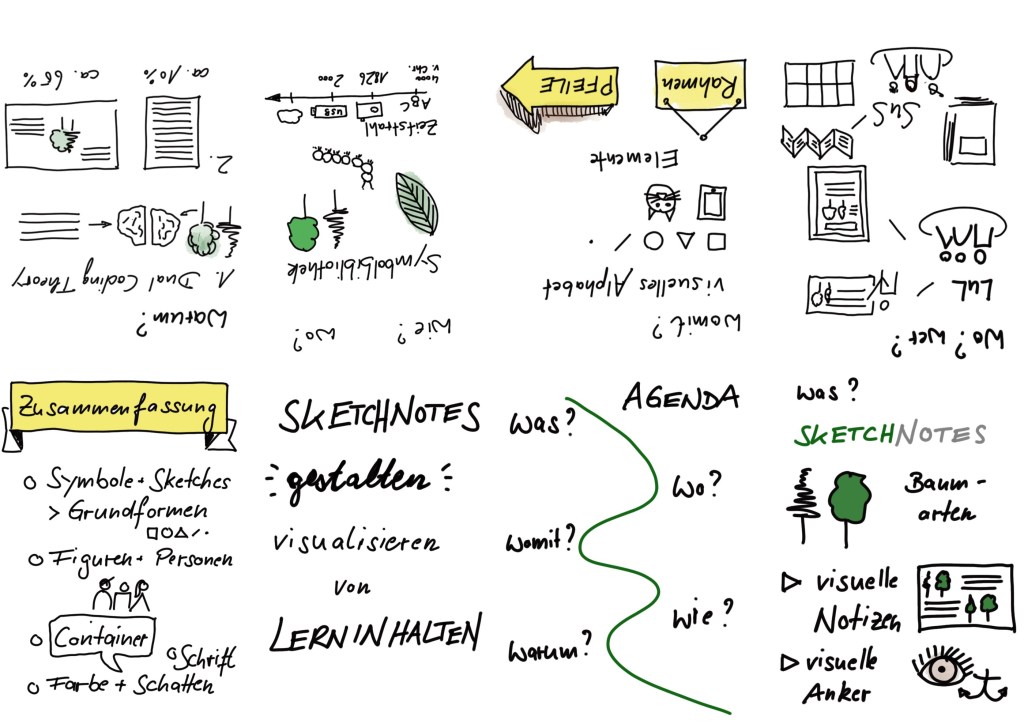 Warum?
1. Dual Coding Theory
2.
ca. 10%
ca. 66%
Wie? Wo?
Symbolbibliothek
Zeitstrahl
ABC
USB
4000
v. Chr.
1826
2000
Womit?
visuelles Alphabet
Elemente
Rahmen
PFEILE
Wo? Wer?
LuL
SuS
Zusammenfassung
o Symbole + Sketches
> Grundformen
o Figuren + Personen
o Container
o Schrift
o Farbe + Schatten
SKETCHNOTES
gestalten
visualisieren
von
LERNINHALTEN
AGENDA
Was?
Wo?
Womit?
Wie?
Warum?
Was?
SKETCHNOTES
Baum-
arten
▷ visuelle
Notizen
▷ visuelle
Anker